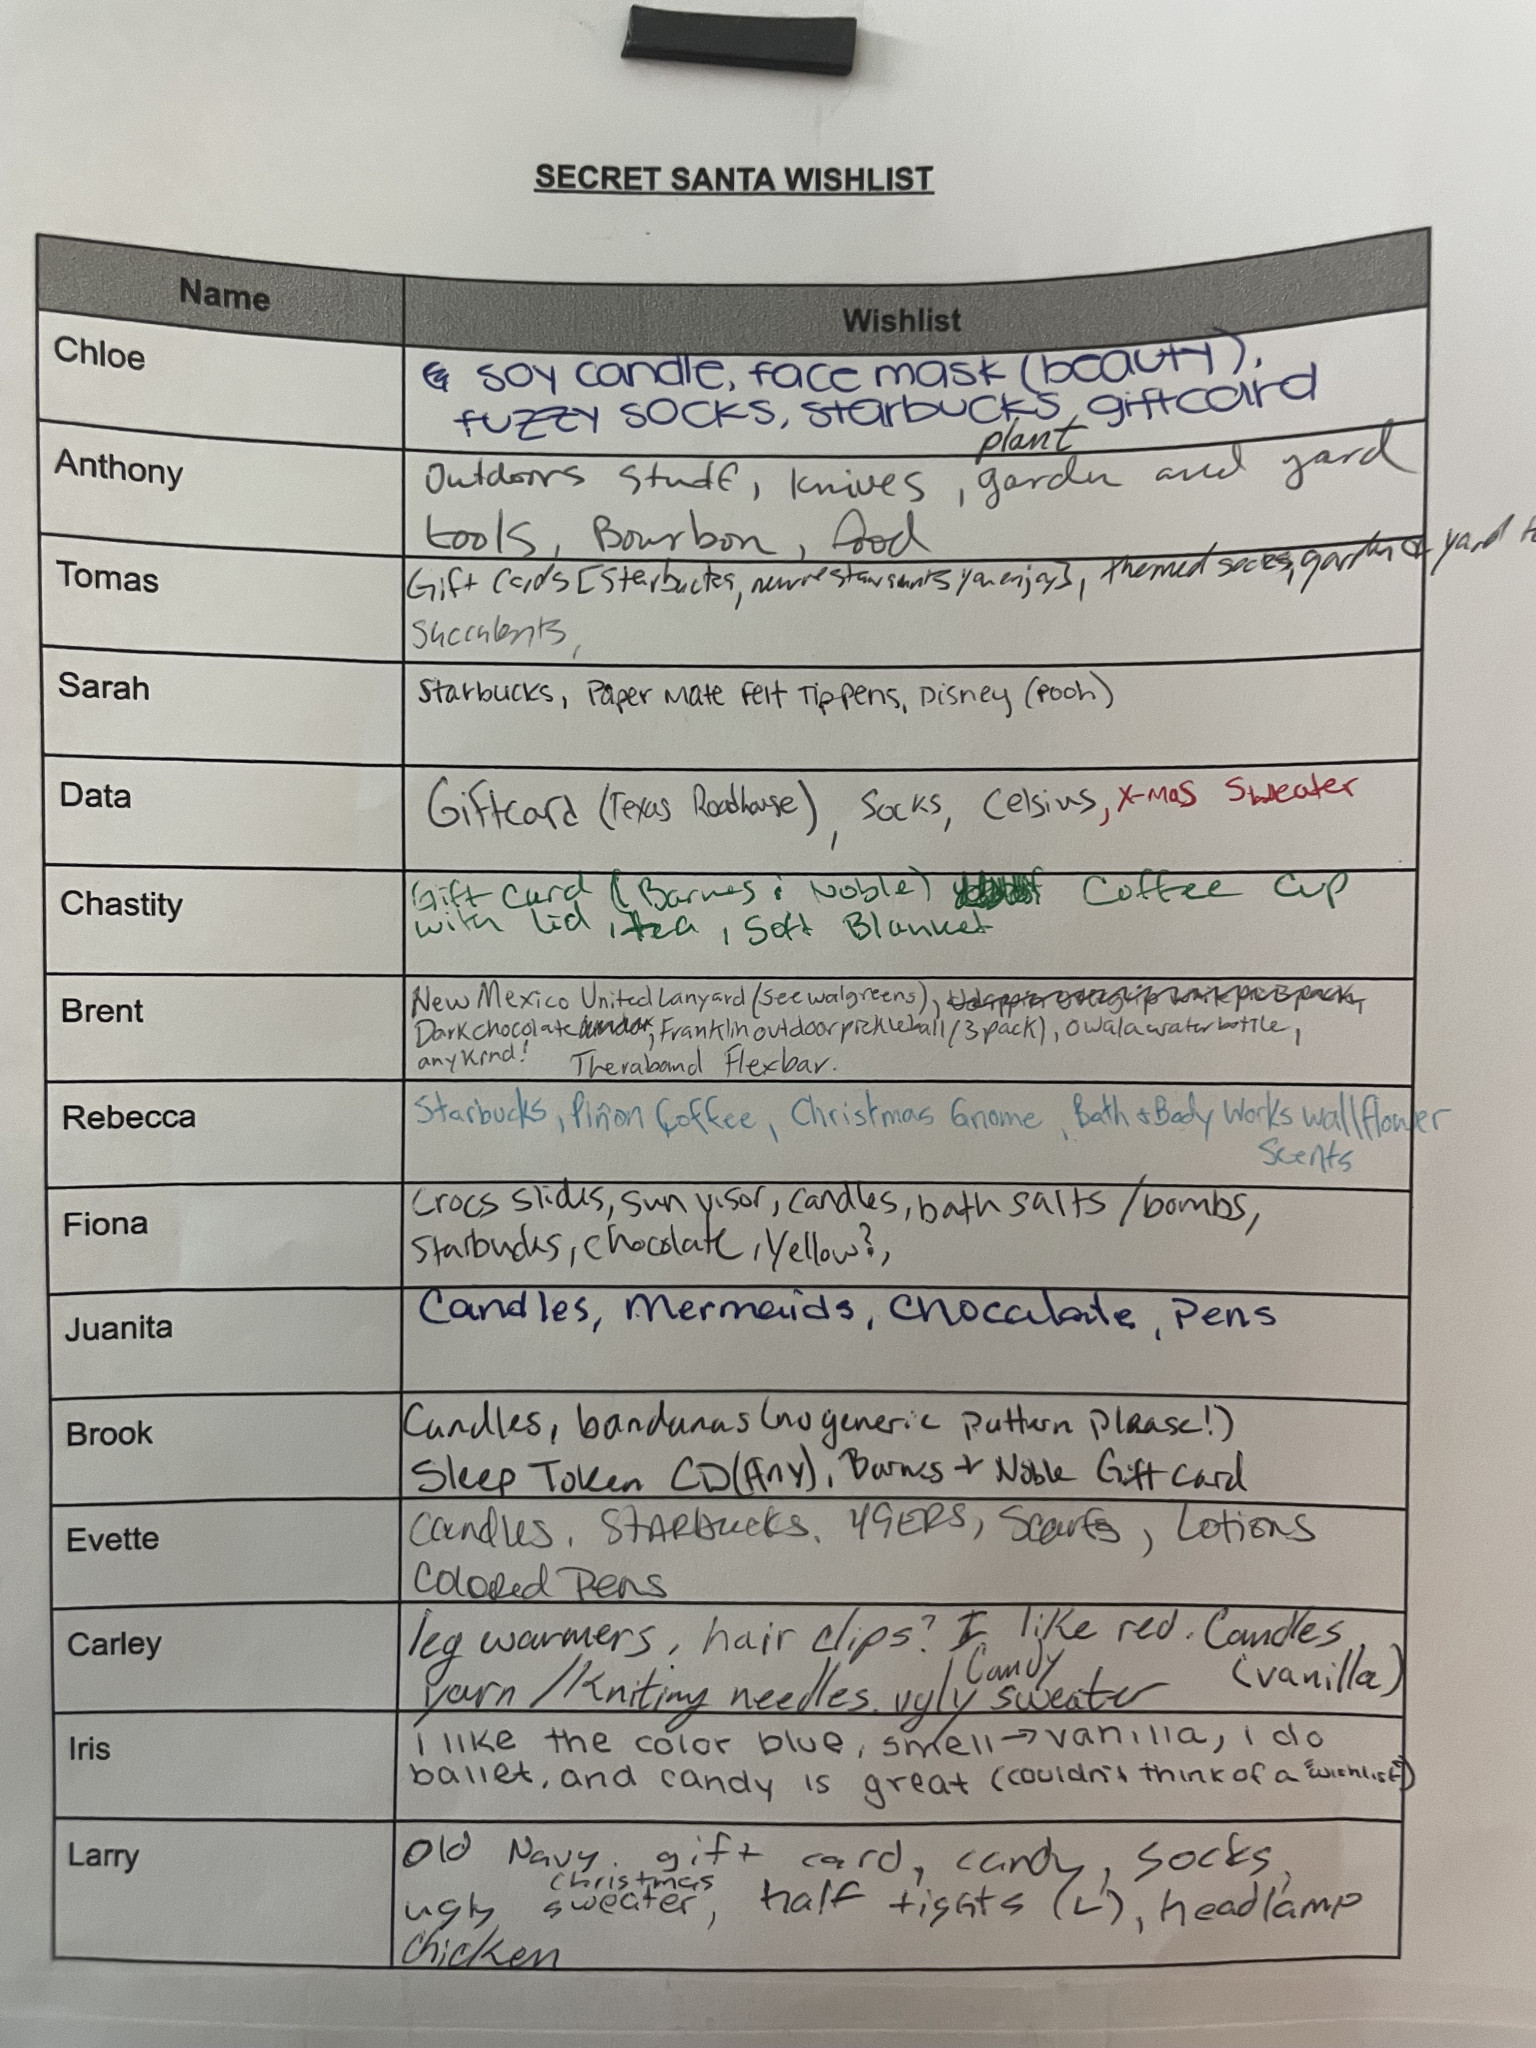 SECRET SANTA WISHLIST
Name Wishlist
Chloe
soy candle, face mask (beauty),
fuzzy socks, starbucks giftcard
Anthony
plant
Outdoors stuff, knives, garden and yard
tools, Bourbon, food
Tomas
Gift Cards [Starbucks, new restaurants you enjoy], themed socks, garden & yard
Succulents,
Sarah
Starbucks, Paper Mate Felt Tip pens, Disney (Pooh)
Data
Giftcard (Texas Roadhouse), Socks, Celsius, X-mas Sweater
Chastity
Gift Card (Barnes & Noble) Coffee Cup
with lid, tea, Soft Blanket
Brent
New Mexico United Lanyard (see walgreens),
Dark chocolate, Franklin outdoor pickleball (3 pack), Owala water bottle,
any kind! Theraband Flexbar.
Rebecca
Starbucks, Piñon Coffee, Christmas Gnome, Bath + Body Works wallflower
Scents
Fiona
Crocs slides, sun visor, candles, bath salts / bombs,
Starbucks, chocolate, yellow?,
Juanita
Candles, Mermaids, Chocalate, Pens
Brook
Candles, bandanas (no generic pattern please!)
Sleep Token CD (Any), Barnes + Noble Gift card
Evette
Candles, STARBUCKS, 49ERS, Scarfs, Lotions
Colored Pens
Carley
leg warmers, hair clips? I like red. Candles
Candy (vanilla)
yarn / Kniting needles. ugly sweater
Iris
i like the color blue, smell → vanilla, i do
ballet, and candy is great (couldn't think of a "wishlist")
Larry
Old Navy gift card, candy, socks,
christmas
ugly sweater, half tights (L), headlamp
chicken